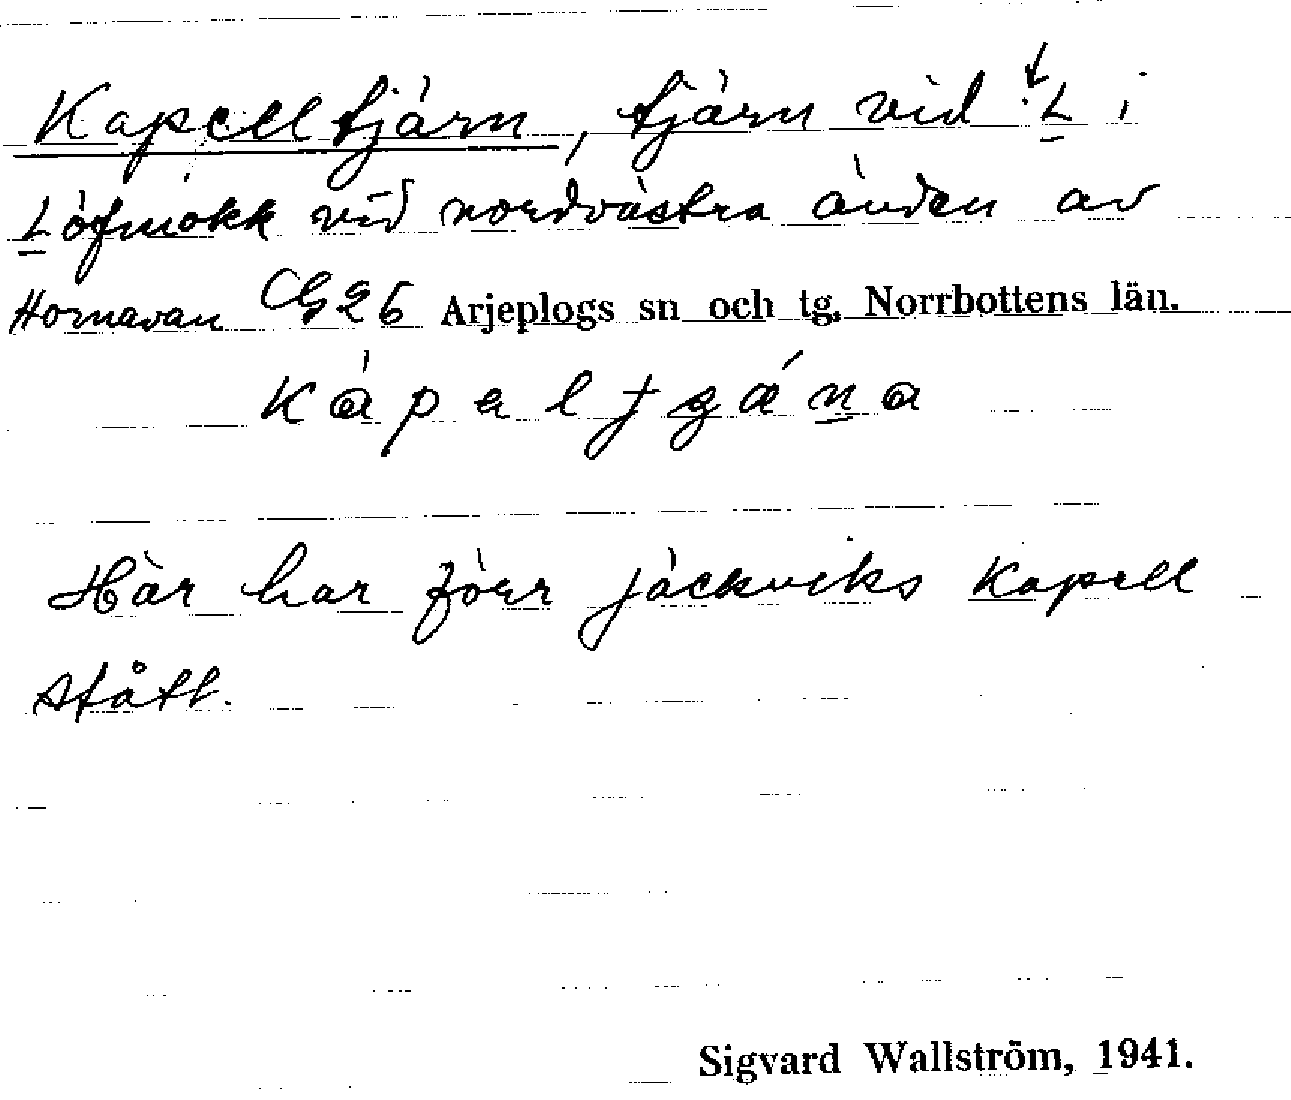 Kapelltjärn, tjärn vid L i
Löfmokk vid nordvästra änden av
Hornavan CG26 Arjeplogs sn och tg. Norrbottens län.
Här har förr Jäckviks Kapell
stått.
Sigvard Wallström, 1941.